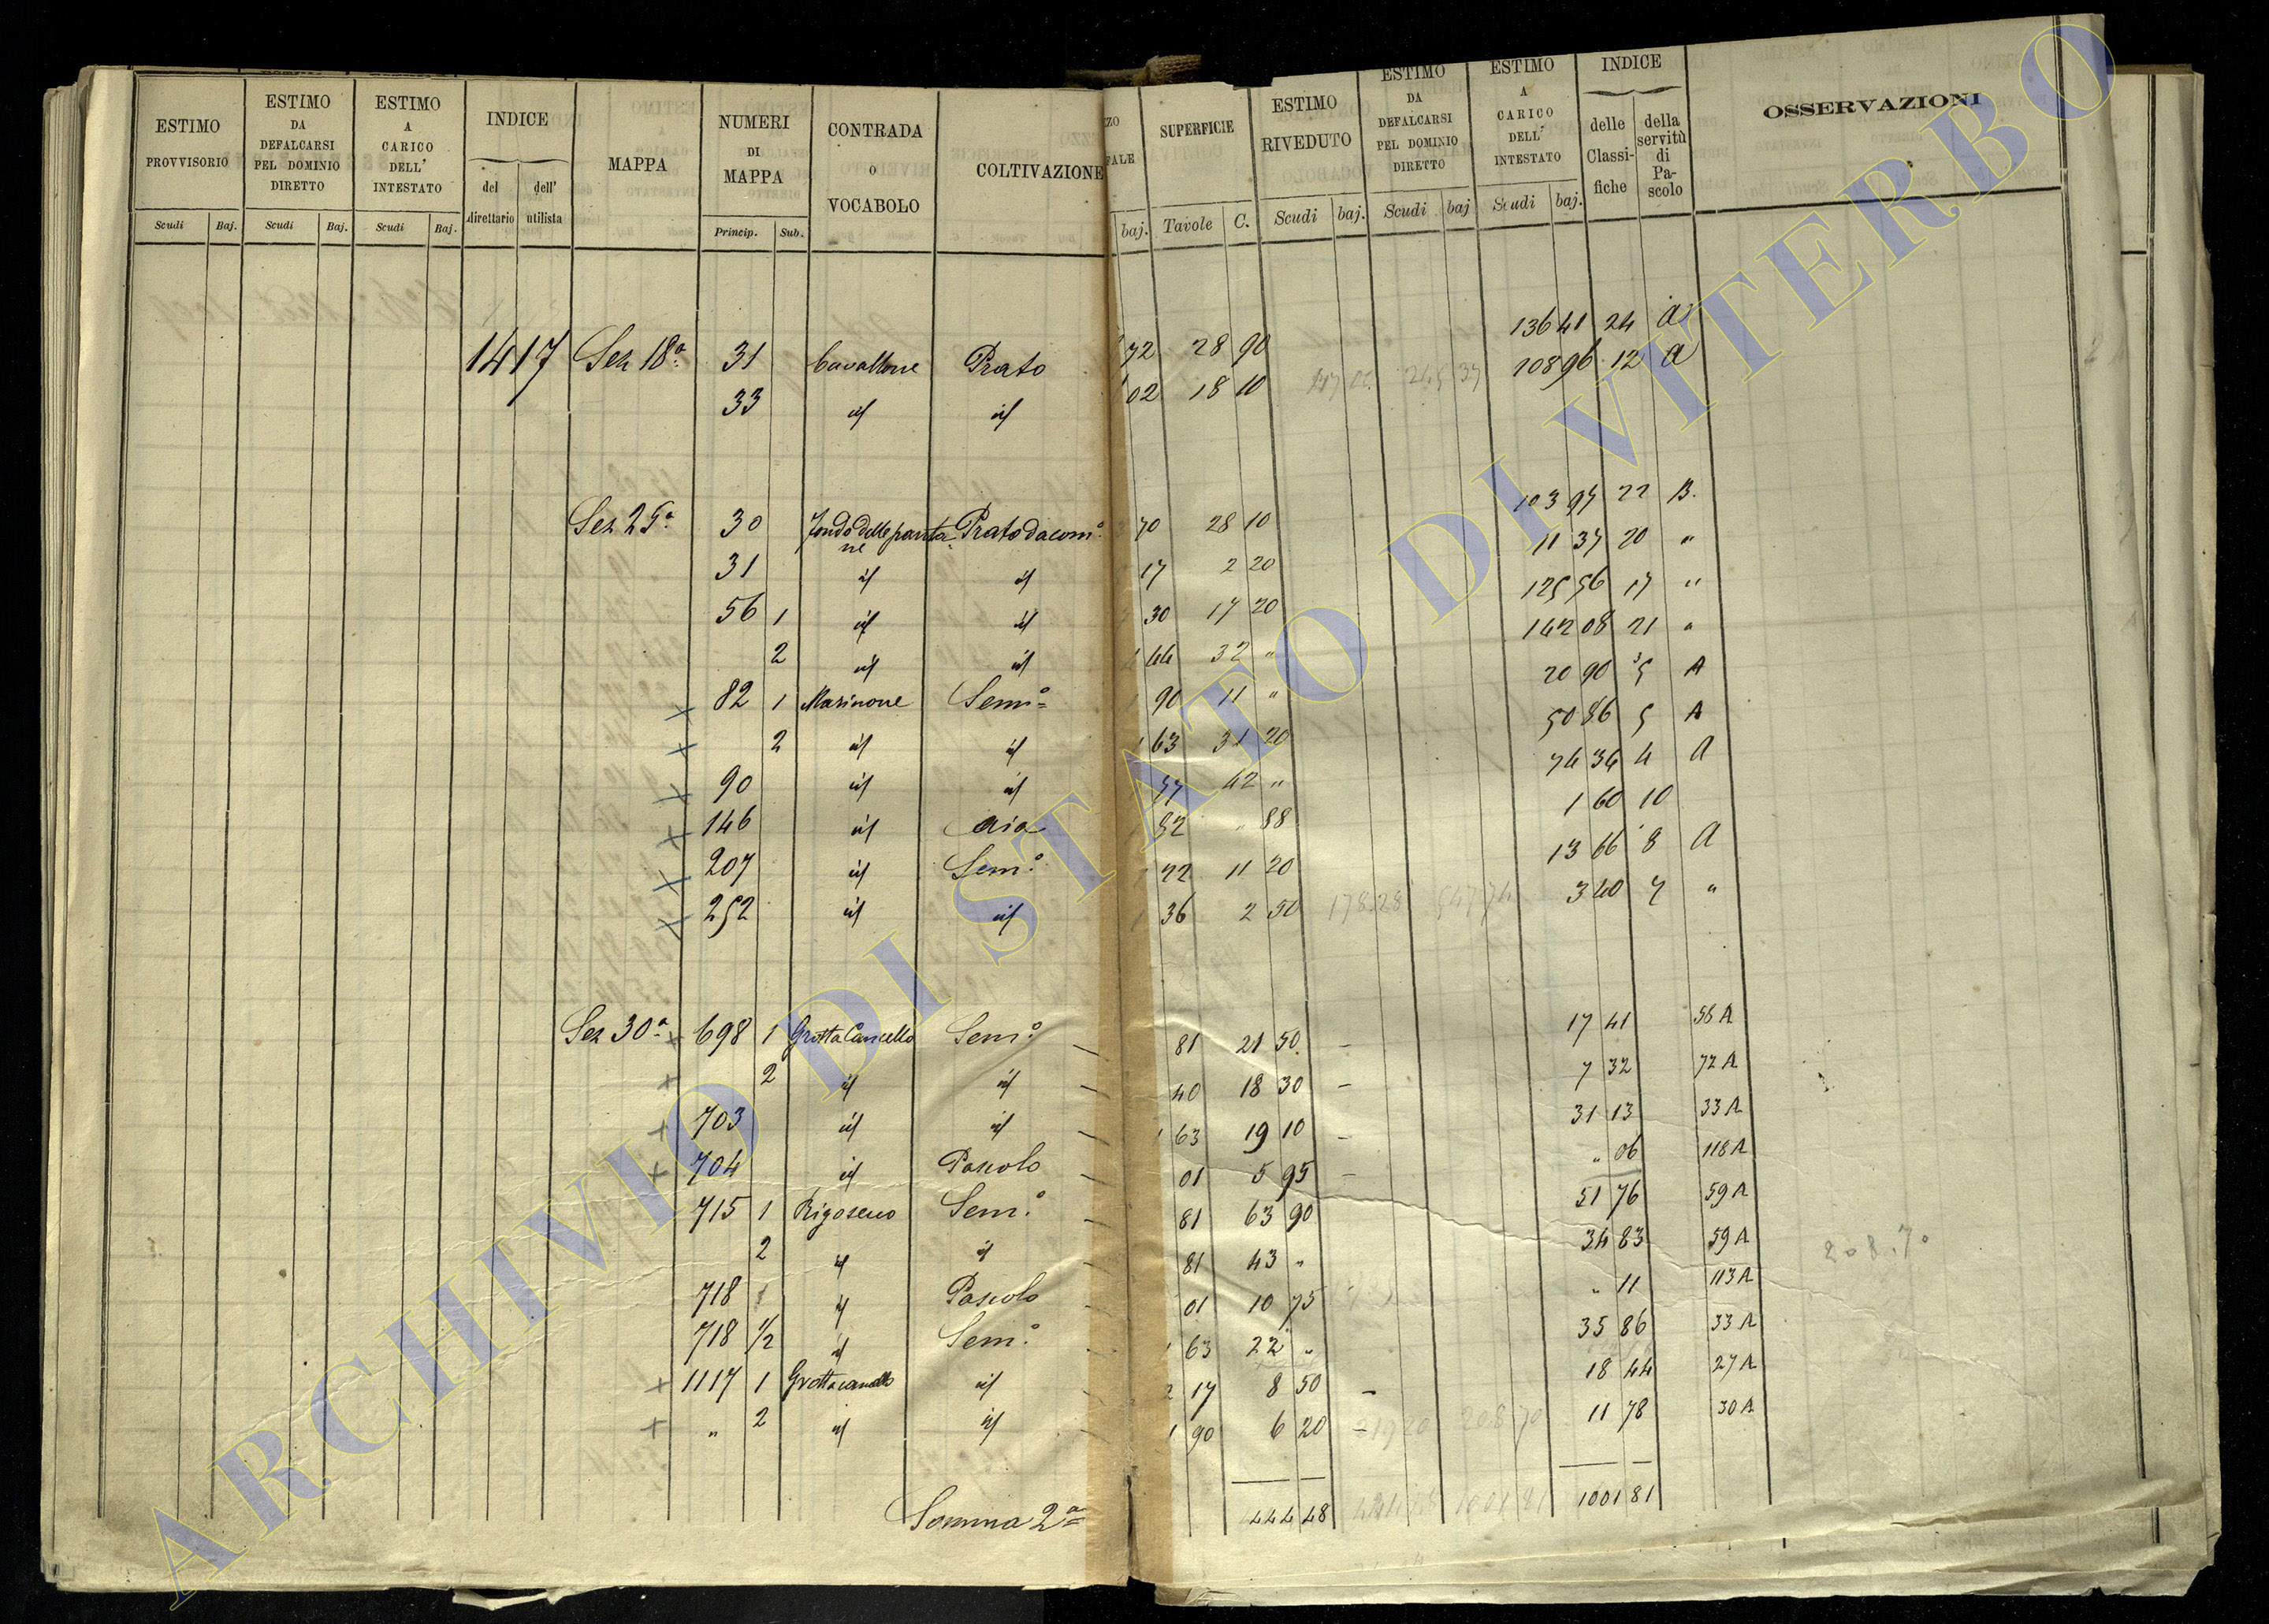 ESTIMO PROVVISORIO | ESTIMO DA DEFALCARSI PEL DOMINIO DIRETTO | ESTIMO A CARICO DELL' INTESTATO | INDICE del direttario dell' utilista | MAPPA | NUMERI DI MAPPA | CONTRADA O VOCABOLO | COLTIVAZIONE | SUPERFICIE | ESTIMO RIVEDUTO | ESTIMO DA DEFALCARSI PEL DOMINIO DIRETTO | ESTIMO A CARICO DELL' INTESTATO | INDICE delle Classifiche della servitù di Pascolo | OSSERVAZIONI
Scudi Baj. Scudi Baj. Scudi Baj. Princip. Sub. baj. Tavole C. Scudi baj. Scudi baj Scudi baj.
1417 Sez 18ª 31 Cavallone Prato 72 28 90 136 41 24 A
33 id id 02 18 10 108 96 12 A
Sez 25ª 30 Fondo delle panta ne Prato da com° 70 28 10 103 97 22 B.
31 id id 17 2 20 11 37 20 "
56 1 id id 30 17 20 125 56 17 "
2 id id 44 32 " 142 08 21 "
82 1 Marinone Sem° 90 11 " 20 90 5 A
2 id id 63 31 20 50 86 5 A
90 id id 57 42 " 74 34 4 A
146 id Aia 52 " 88 1 60 10
207 id Sem° 22 11 20 13 66 8 A
252 id id 36 2 50 178 28 547 74 3 40 7 "
Sez 30ª 698 1 Grotta Cancello Sem° 81 21 50 17 41 58 A
2 id id 40 18 30 7 32 72 A
703 id id 63 19 10 31 13 33 A
704 id Pascolo 01 5 95 " 06 118 A
715 1 Rigosecco Sem° 81 63 90 51 76 59 A
2 id id 81 43 " 34 83 59 A 208.70
718 id Pascolo 01 10 75 " 11 113 A
718 1/2 id Sem° 63 22 " 35 86 33 A
1117 1 Grottacancello id 17 8 50 18 44 27 A
" 2 id id 90 6 20 219 20 208 70 11 78 30 A
Somma 2ª 444 48 1001 81 1001 81
ARCHIVIO DI STATO DI VITERBO